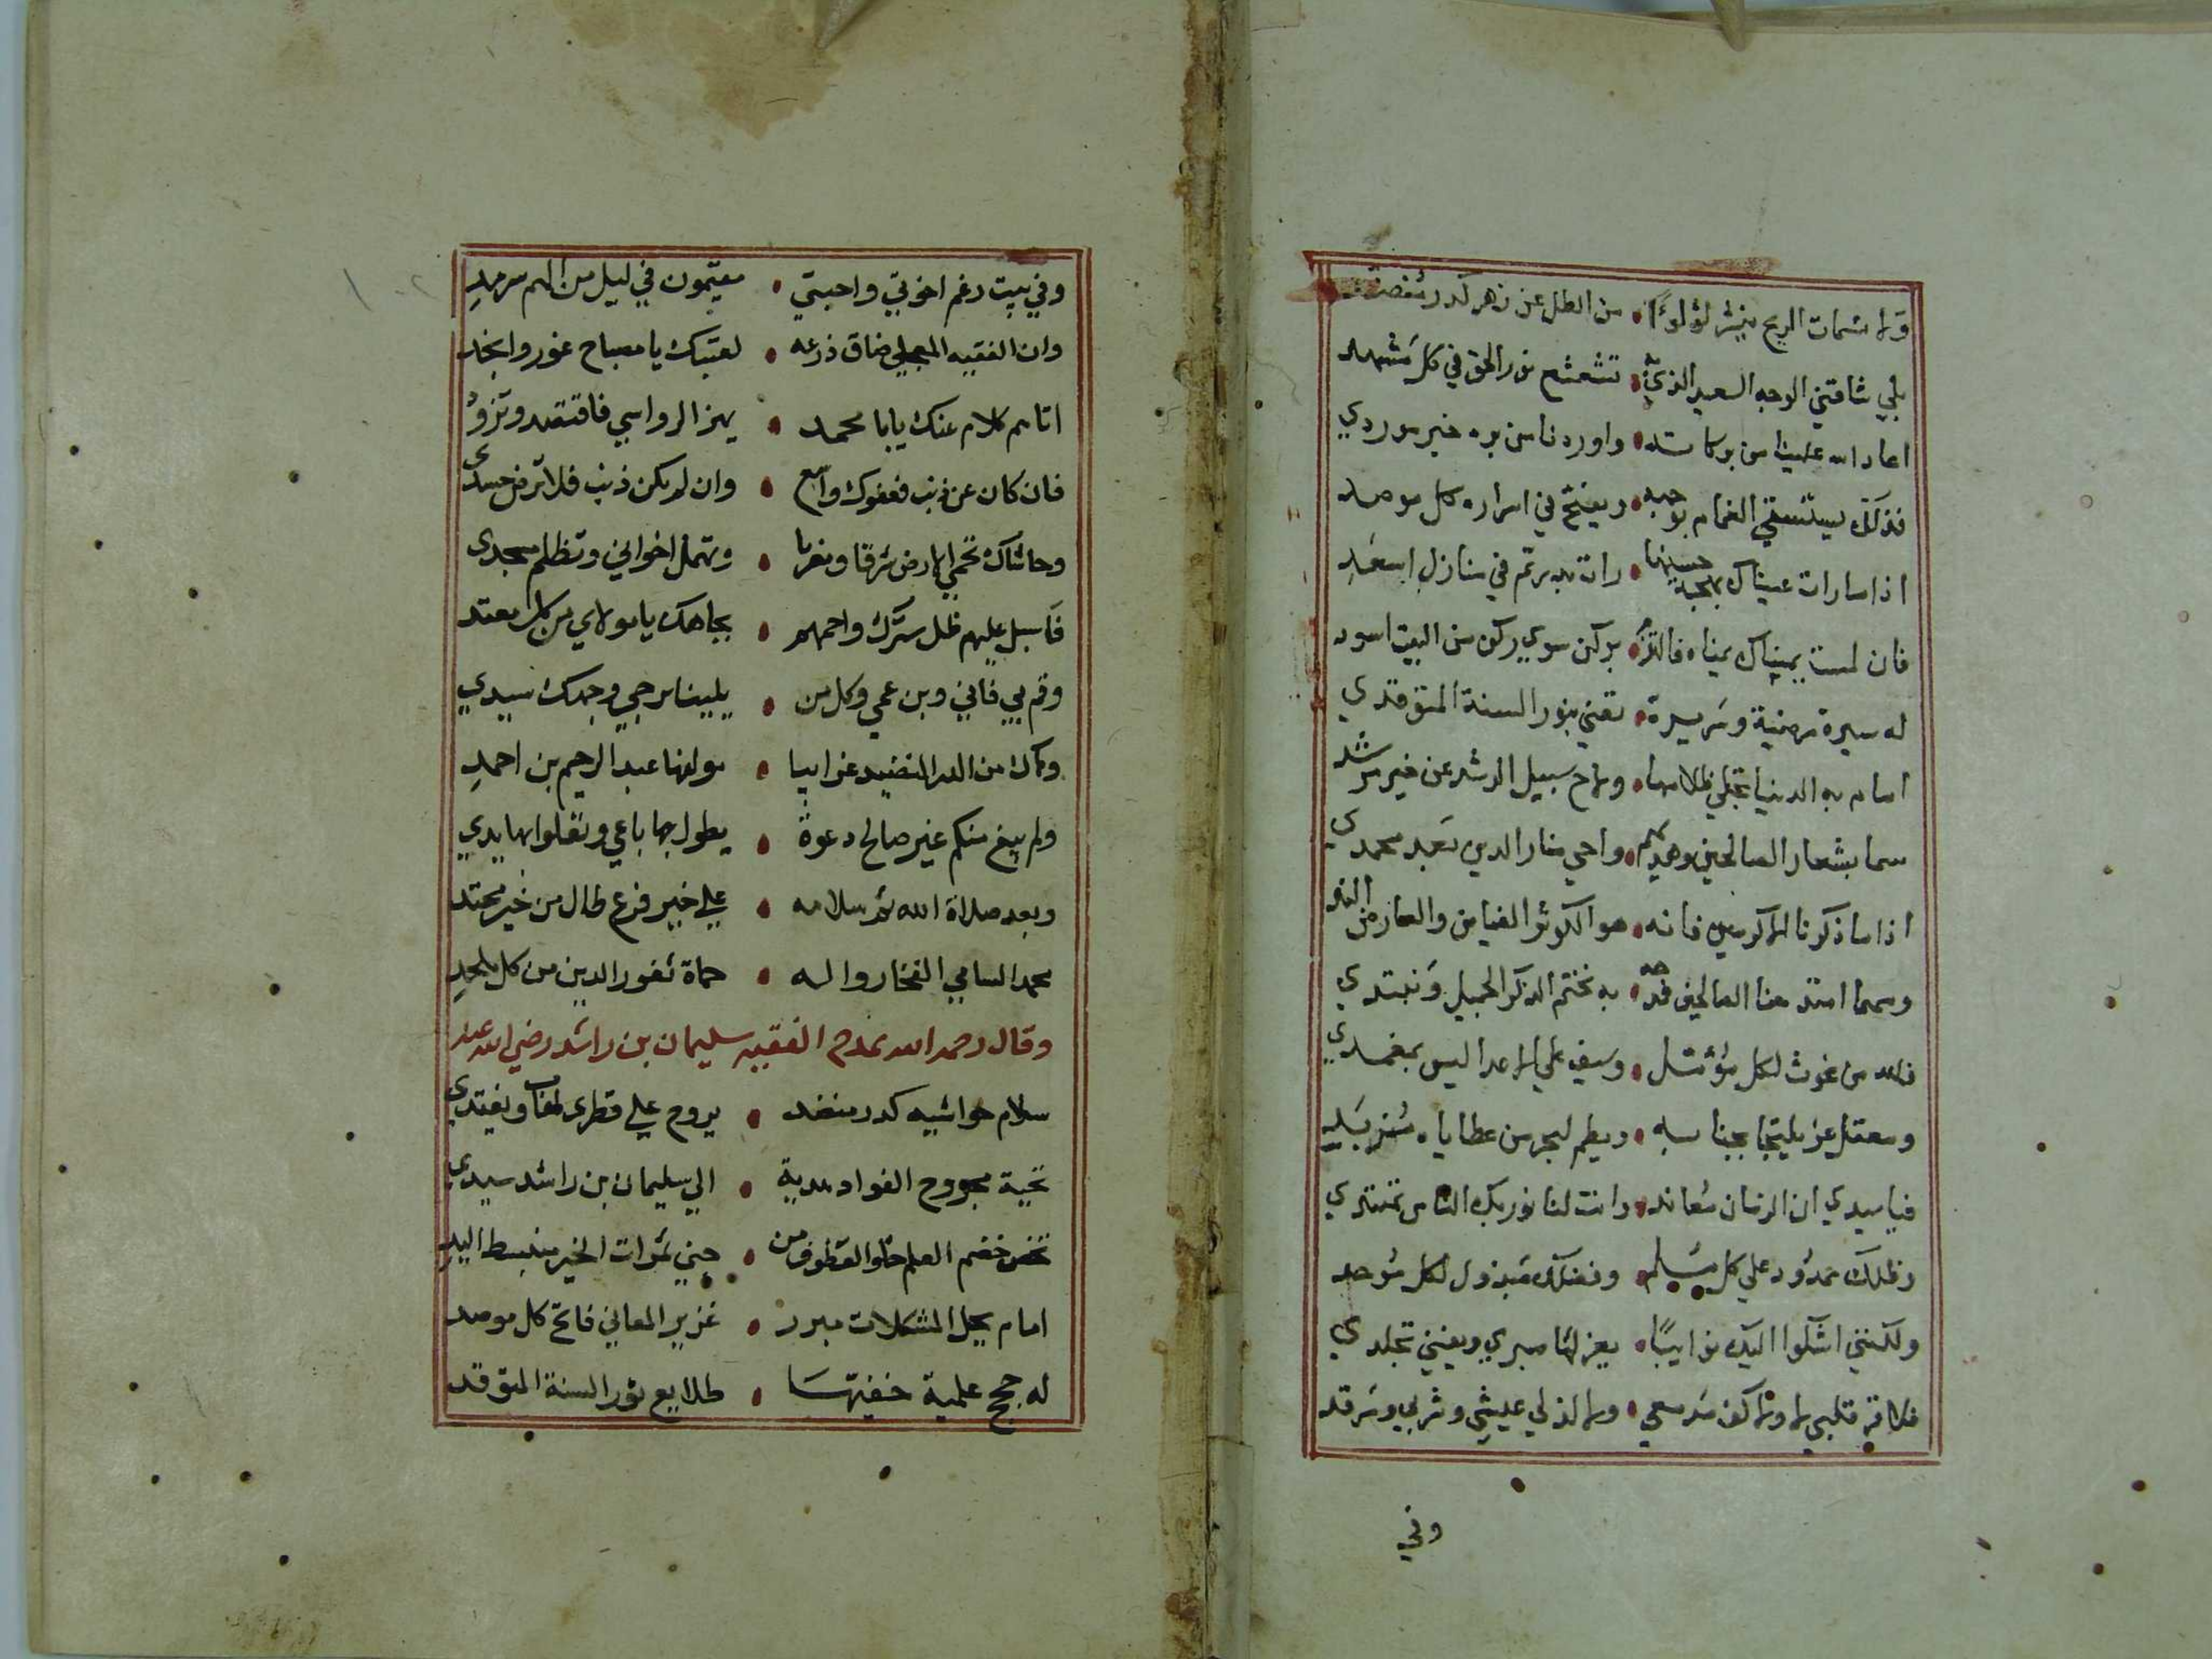 ولا نسمات الريح ينثر لؤلؤا • من الطل عن زهر كدر منضد
بلي شاقني الوجه السعيد الذي به • تشعشع نور الحق في كل مشهد
اعاد الله علينا من بركاته • واوردنا من بره خير موردي
فذلك يستسقي الغمام بوجهه • ويفتح في اسراره كل موصد
اذا ما رات عيناك بهجة حسنها • رات بدر تم في منازل اسعد
فان لمست يمينك يمناه فالتزم • بركن سوي ركن من البيت اسود
له سيرة مرضية وسريرة • تضي بنور السنة المتوقدي
امام به الدنيا تجلي ظلامها • ولاح سبيل الرشد عن خير مرشد
سما بشعار الصالحين وهديهم • واحي منار الدين بعد محمدي
اذا ما ذكرنا الاكرمين فانه • هو الكوثر الفياض والعارض الندي
ومهما امتدحنا الصالحين فمدحه • به نختم الذكر الجميل ونبتدي
فلله من غوث لكل مؤمل • وسيف علي الاعدا ليس بمغمدي
ومعقل عز يلتجا بجنابه • ويطم لبحر من عطاياه مزبد
فيا سيدي ان الزمان معاند • وانت لنا نور بك الناس تهتدي
وظلك ممدود علي كل مسلم • وفضلك مبذول لكل موحد
ولكنني اشكوا اليك نوايبا • يعز لها صبري ويفني تجلدي
فلا قر قلبي لا ولا كف مدمعي • ولا لذ لي عيشي وشربي ومرقد
وفي
وفي بيت رغم اخوتي واحبتي • مقيمون في ليل من الهم سرمد
وان الفقيه المجملي ضاق ذرعه • لعتبك يا مصباح غور وانجد
اتاهم كلام عنك يابا محمد • يهز الرواسي فاقتقد وتزود
فان كان عن ذنب فعفوك واسع • وان لم يكن ذنب فلا ترض حسدي
وحاشاك تحمي الارض شرقا ومغربا • وتهمل اخواني وتظلم مسجدي
فاسبل عليهم ظل سترك واحمهم • بجاهك يا مولاي من كل معتد
وقم بي فاني وبن عمي وكل من • يلينا نرجي وجدك سيدي
وكان من الدر النضيد غرايبا • مولفها عبد الرحيم بن احمد
ولم يبغ منكم غير صالح دعوة • يطول بها باعي وتعلوا بها يدي
وبعد صلاة الله ثم سلامه • علي خير فرع طال من خير محتد
محمد السامي الفخار واله • حماة ثغور الدين من كل ملحد
وقال رحمه الله يمدح الفقيه سليمان بن راشد رضي الله عنه
سلام حواشيه كدر منضد • يروح علي قطري لعاب ويغتدي
تحية مجروح الفواد هدية • الي سليمان بن راشد سيدي
تخص خضم العلم حلو القطوف من • جني ثمرات الخير منبسط اليد
امام يحل المشكلات مبرز • غزير المعاني فاتح كل موصد
له حجج علمية حنفيتها • طلايع نور السنة المتوقد